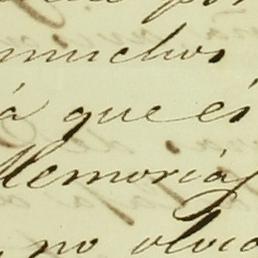 por
muchos
á que és
Memorias
no olvid